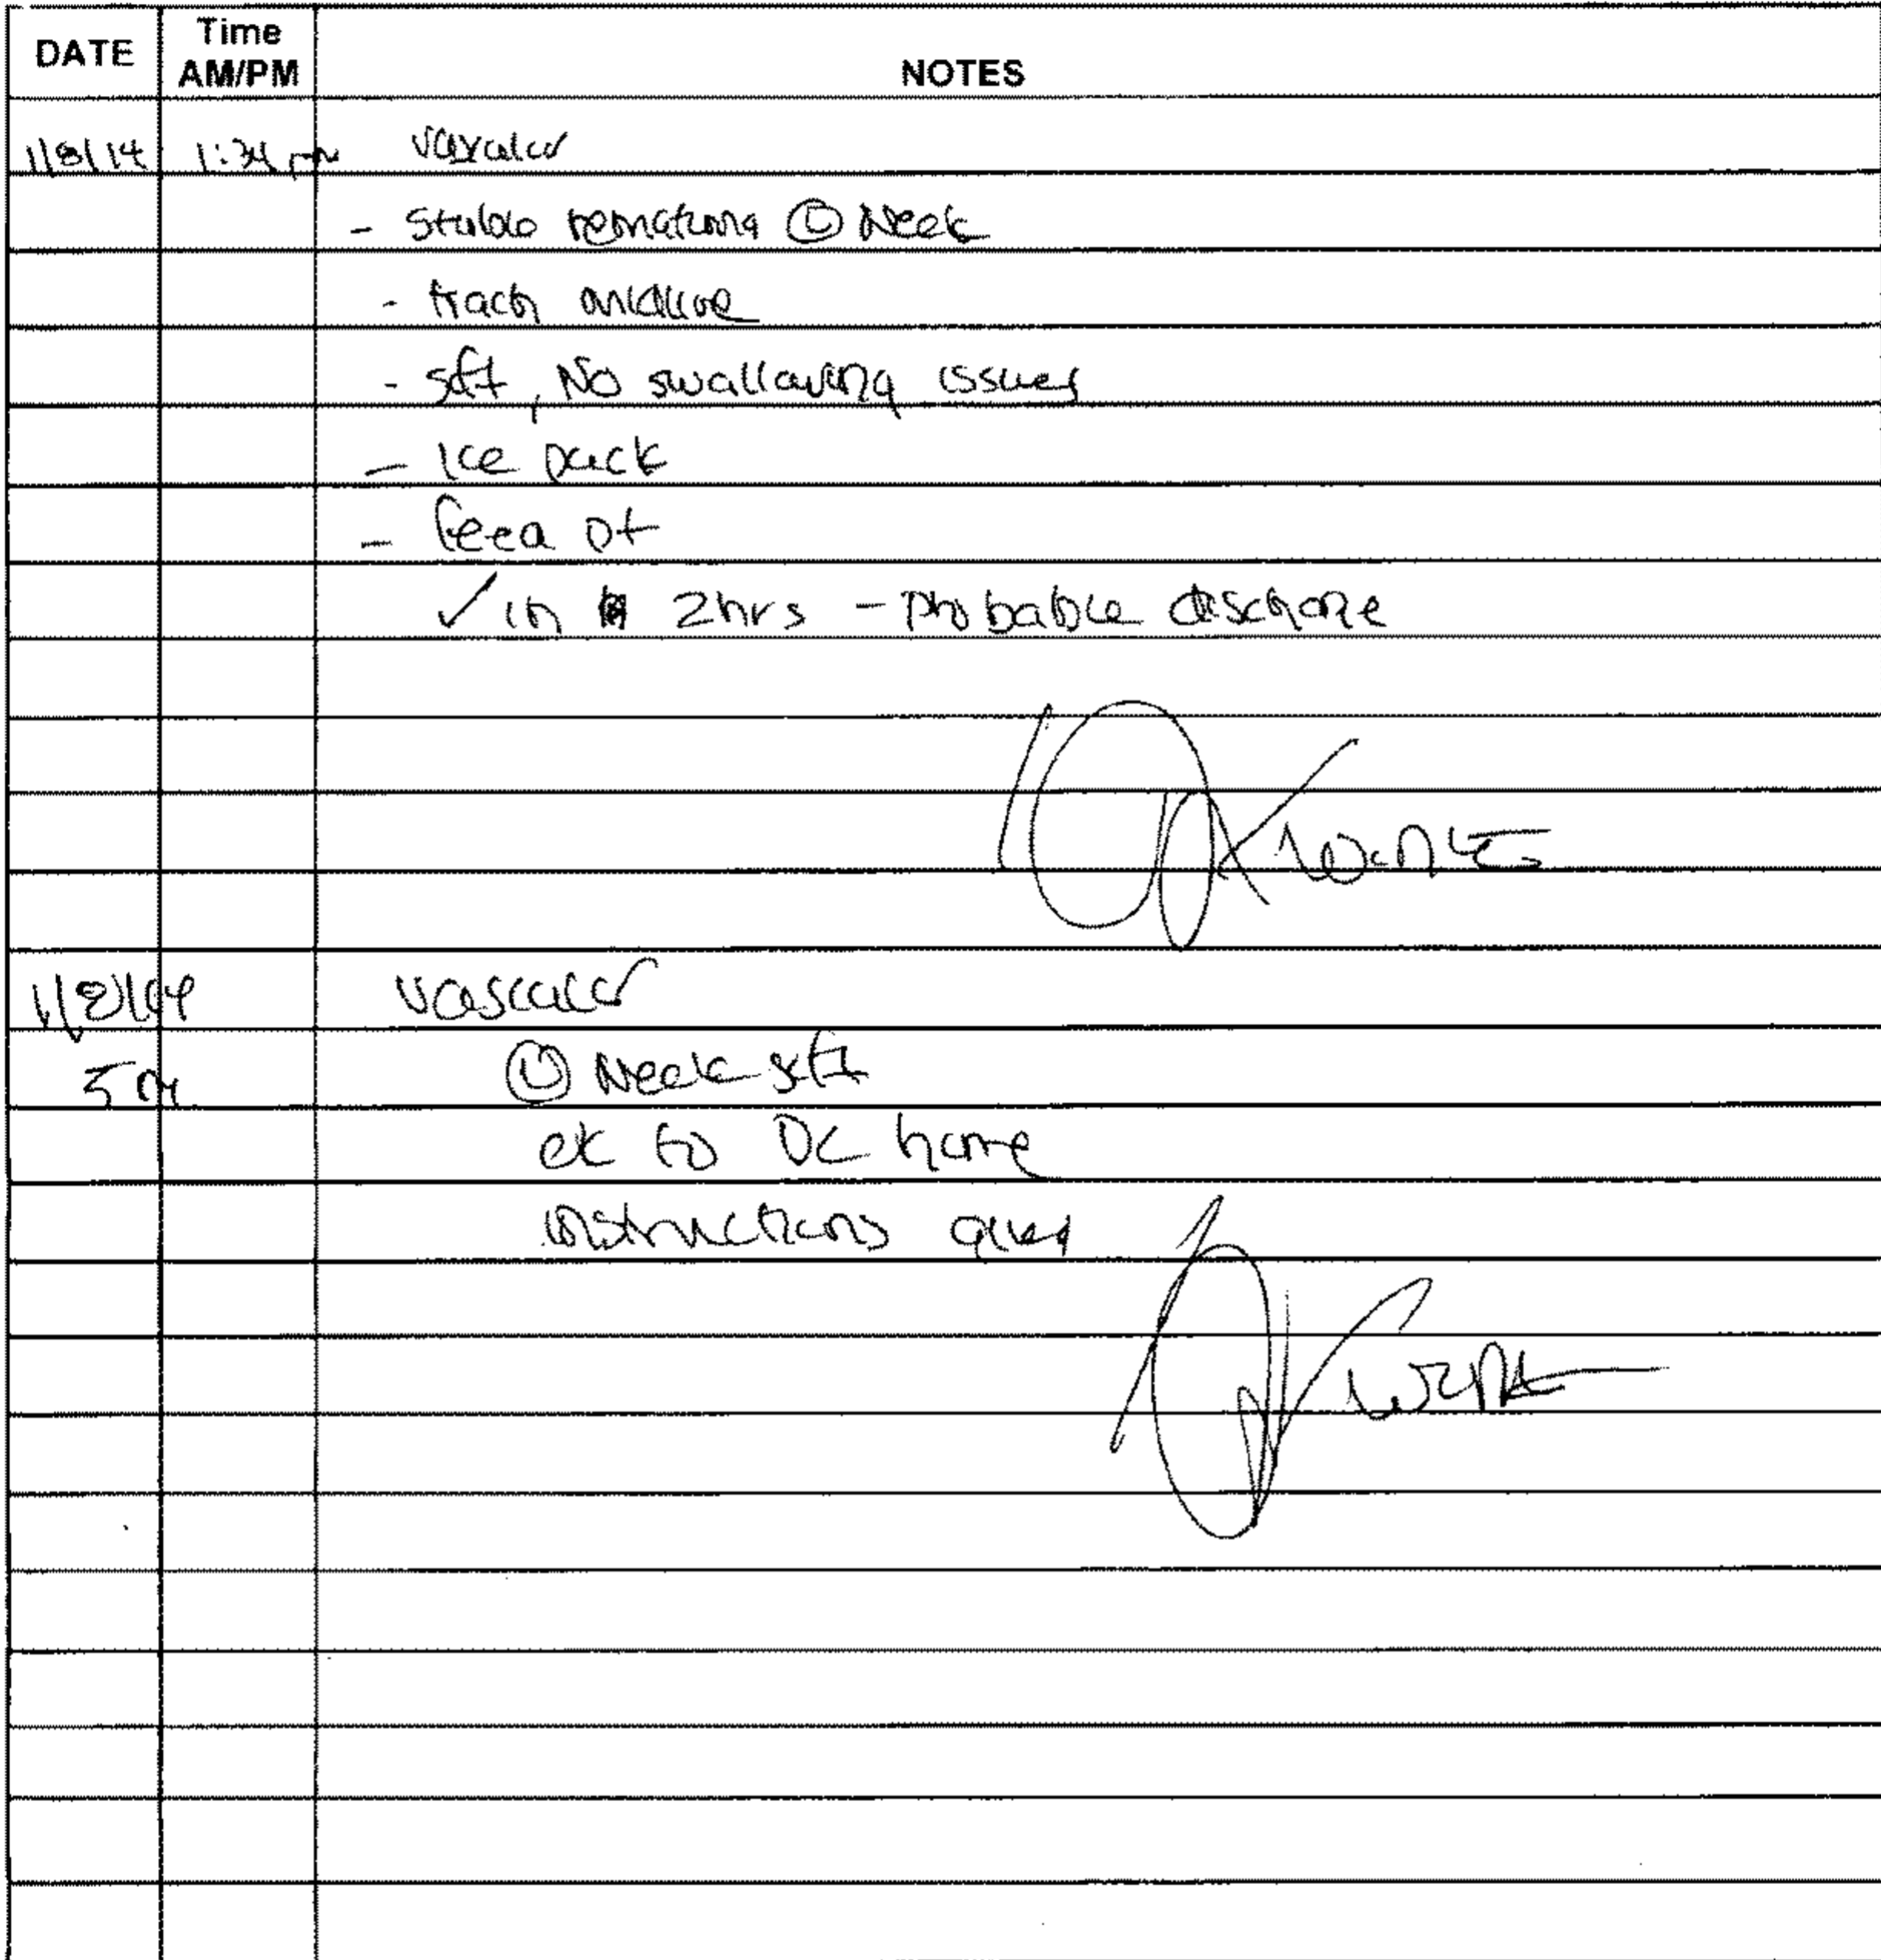 DATE Time AM/PM NOTES
1/8/14 1:34 pm vascular
- Stable hematoma Ⓛ Neck
- trach midline
- soft, No swallowing issues
- Ice pack
- feed pt
✓ in 2hrs - Probable discharge
1/8/14 vascular
5 PM Ⓛ Neck soft
ok to DC home
instructions given